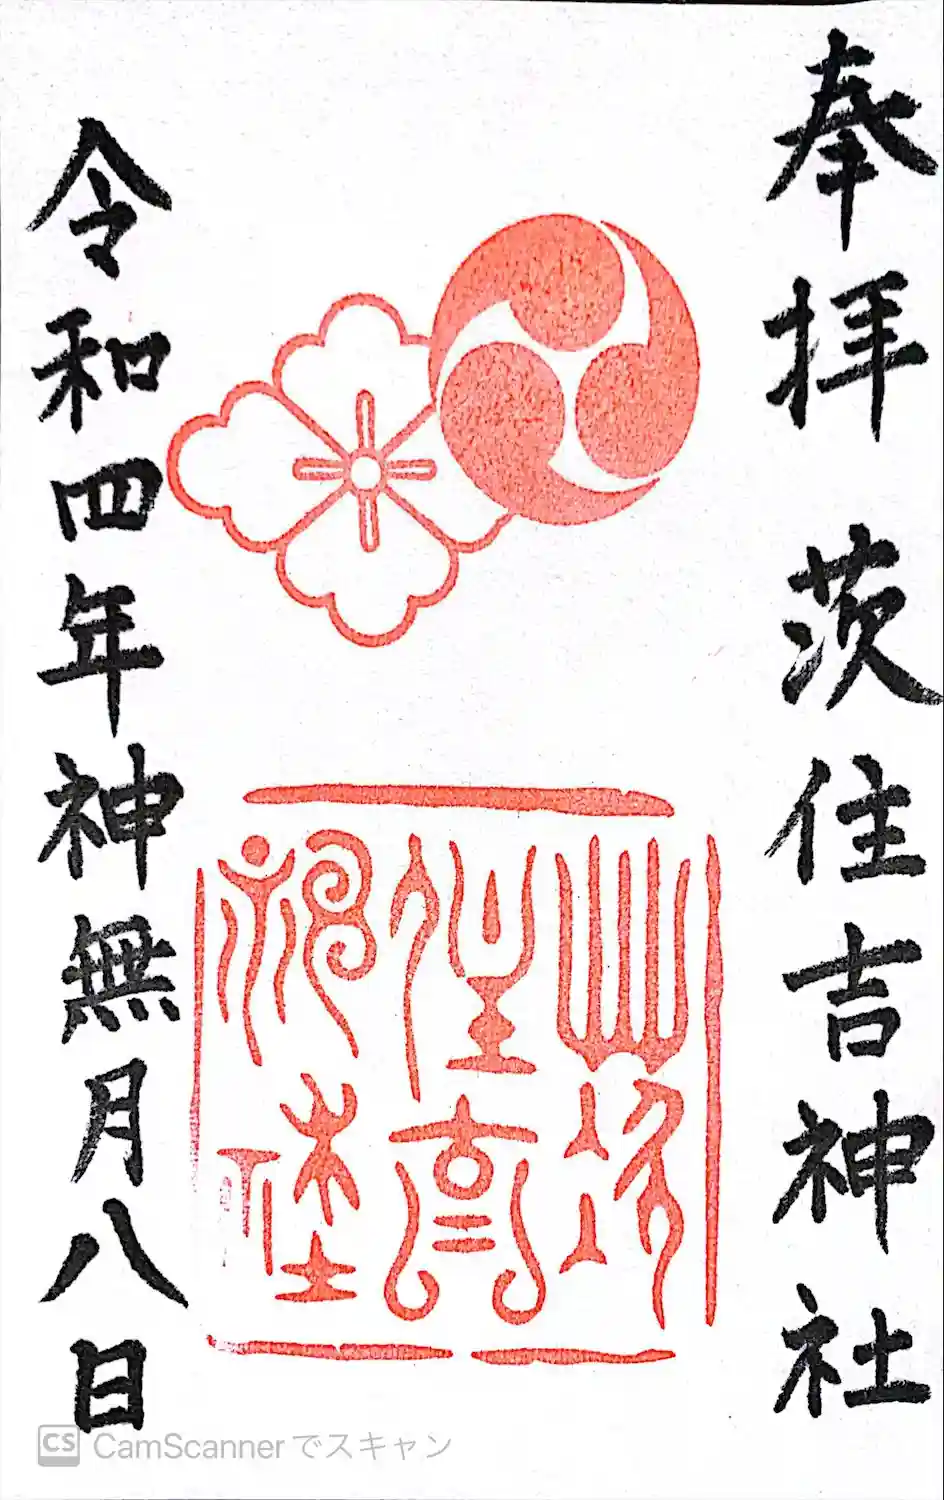 奉拝 茨住吉神社
令和四年神無月八日
CS CamScannerでスキャン